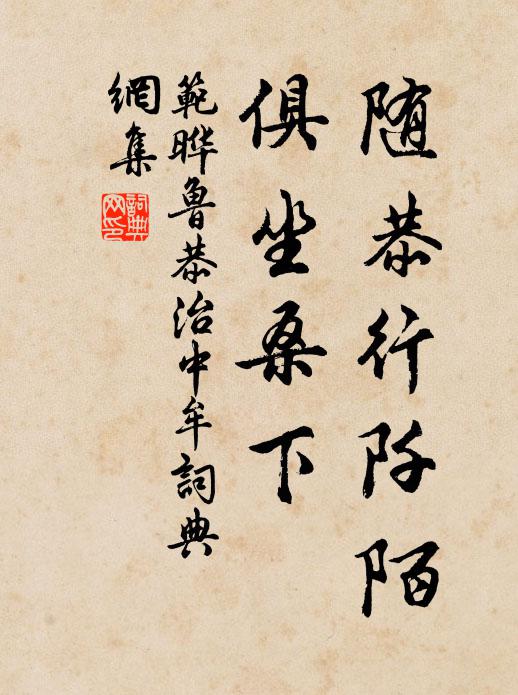 随恭行阡陌
俱坐桑下
範曄魯恭治中牟詞典
網集
詞典
网印